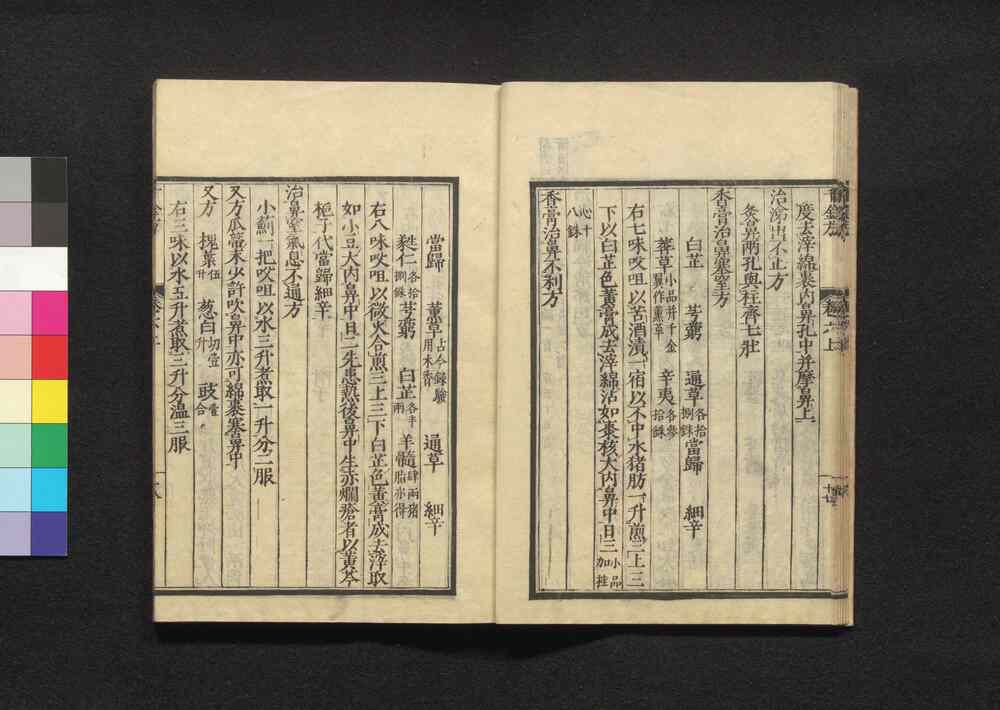 度去滓綿裹内鼻孔中并摩鼻上
治涕出不止方
灸鼻兩孔與柱齊七壯
香膏治鼻塞窒方
白芷 芎藭 通草各拾捌銖 當歸 細辛
莽草小品并千金翼作薰草 辛夷各參拾銖
右七味㕮咀以苦酒漬一宿以不中水猪肪一升煎三上三
下以白芷色黃膏成去滓綿沾如棗核大内鼻中日三小品加桂
心十八銖
香膏治鼻不利方
當歸 薰草古今録驗用木香 通草 細辛
蕤仁各拾捌銖 芎藭 白芷各半兩 羊髓肆兩猪脂亦得
右八味㕮咀以微火合煎三上三下白芷色黃膏成去滓取
如小豆大内鼻中日二先患熱後鼻中生赤爛瘡者以黃芩
梔子代當歸細辛
治鼻窒氣息不通方
小薊一把㕮咀以水三升煮取一升分二服
又方瓜蔕末少許吹鼻中亦可綿裹塞鼻中
又方 槐葉伍升 葱白切壹升 豉壹合
右三味以水五升煮取三升分温三服